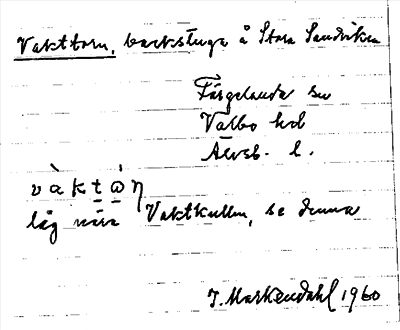 Vakttorn, backstuga å Stora Sandviken
Färgelanda sn
Valbo hd
Älvsb. l.
vàktὼη
låg nära Vaktkullen, se denna
J. Markendahl 1960